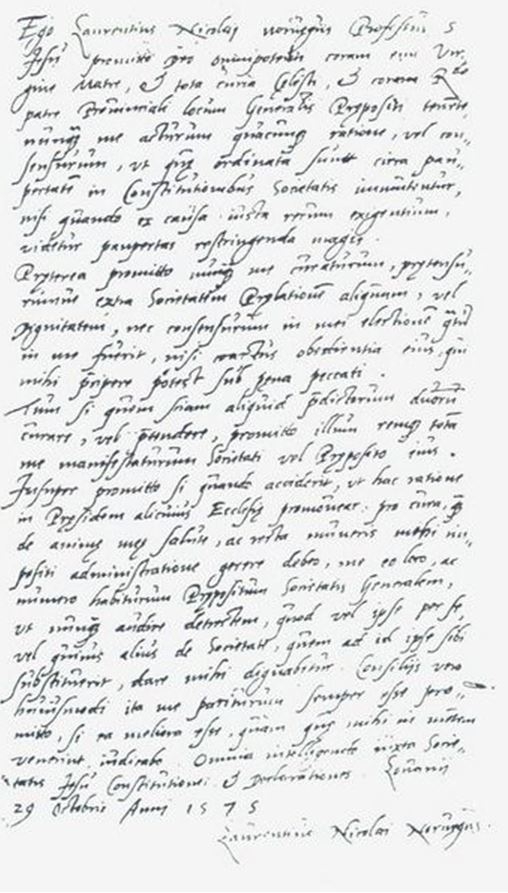 Ego Laurentius Nicolai noruegus Professus S
Jesu promitto pro omnipotenti coram eius Vir,,
gine Matre, & tota curia Celesti, & coram Rdo
patre Prouinciali locum Generalis Prępositi tenente
nunq̃ me acturum quacunq̃ ratione, vel con,,
sensurum, ut quę ordinata sunt circa pau,,
pertatẽ in Constitutionibus Societatis immutentur,
nisi quando ex causa iusta rerum exigentium,
videtur paupertas restringenda magis.
Pręterea promitto nunq̃ me curaturum, prętensu,,
rumue extra Societatem Pręlationẽ aliquam, vel
Dignitatem, nec consensurum in mei electionẽ q̃tũ
in me fuerit, nisi coactus obedientia eius, qui
mihi p̃cipere potest sub pena peccati.
Tum si quem sciam aliquid p̃dictorum duorũ
curare, vel p̃tendere, promitto illum remq̃ totã
me manifestaturum Societati vel Pręposito eius.
Insuper promitto si quando acciderit, ut hac ratione
in Pręsidem alicuius Ecclesię promouear: pro cura, q̃
de animę meę salute, ac recta muneris mihi im,,
positi administratione gerere debeo, me eo loco, ac
numero habiturum Prępositum Societatis Generalem,
ut nunq̃ audire detrectem, quod vel ipse per se,
vel quiuis alius de Societate, quem ad id ipse sibi
substituerit, dare mihi dignabitur. Consilijs vero
huiusmodi ita me pariturum semper esse pro,,
mitto, si ea meliora esse, quàm quę mihi in mentem
venerint, iudicabo. Omnia intelligendo iuxta Socie,,
tatis Jesu Constitutiones & Declarationes. Louanij
29 Octobris Anni 1575
Laurentius Nicolai Noruegus.